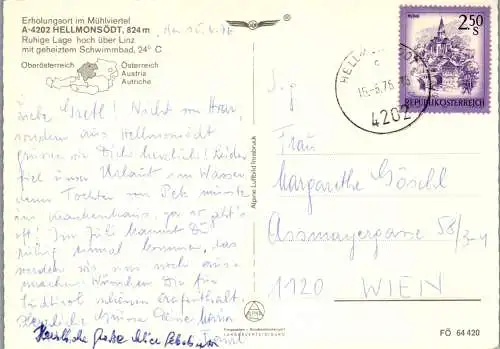 Erholungsort im Mühlviertel
A-4202 HELLMONSÖDT, 824 m
Ruhige Lage hoch über Linz
mit geheiztem Schwimmbad, 24° C
Oberösterreich
Österreich
Austria
Autriche
Liebe Gretl! Nicht von
sondern aus Hellmonsödt
grüßen wir Dich herzlich! Leider
fiel unser Urlaub ins Wasser
denn Tochter von
ins Krankenhaus, so geht's
oft! Im Juli kannst Du
ruhig einmal kommen, das
werden wir uns noch aus-
machen. Wünschen Dir für
Südtirol schönen
Herzliche Grüße Deine
Herzliche Grüße
Alpine Luftbild Innsbruck
HELLMONSÖDT
4202
2.50 S
REPUBLIK ÖSTERREICH
Frau
Margarethe Göschl
Assmayergasse 58/3-4
1120 WIEN
FÖ 64 420